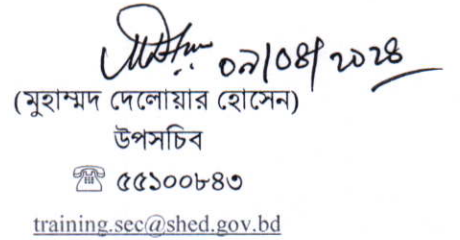 ০৯/০৪/২০২৪
(মুহাম্মদ দেলোয়ার হোসেন)
উপসচিব
☎ ৫৫১০০৮৪৩
training.sec@shed.gov.bd